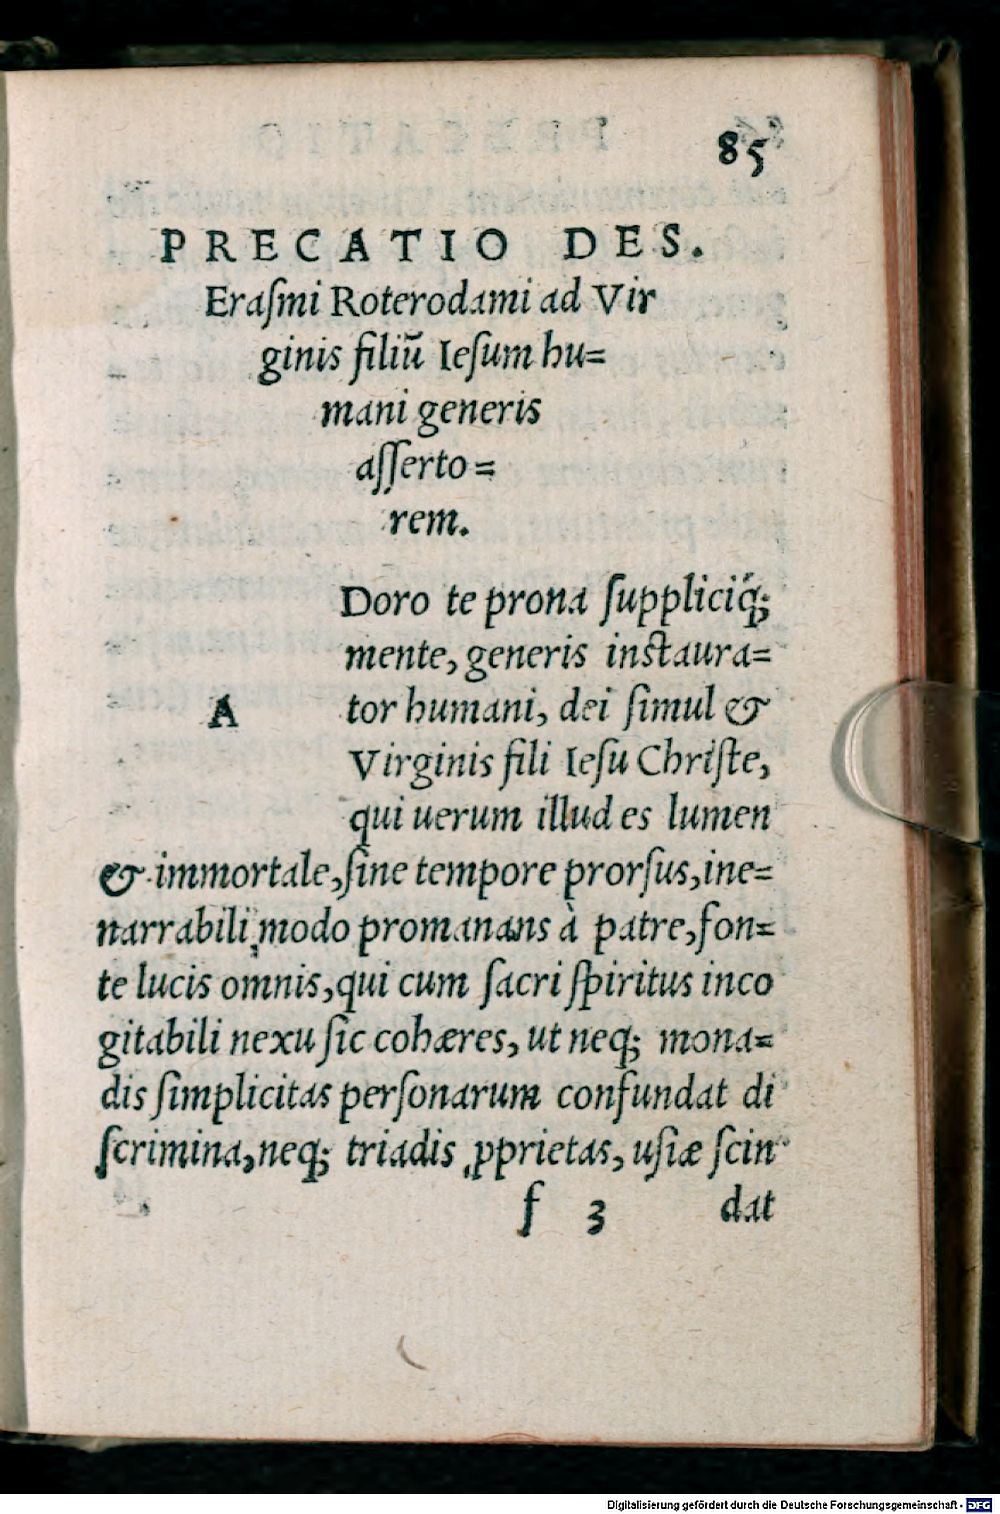 85
PRECATIO DES.
Eraſmi Roterodami ad Vir
ginis filiũ Ieſum hu=
mani generis
aſſerto=
rem.
Doro te prona ſuppliciq́;
mente, generis inſtaura=
A tor humani, dei ſimul &
Virginis fili Ieſu Chriſte,
qui uerum illud es lumen
& immortale, ſine tempore prorſus, ine=
narrabili modo promanans à patre, fon=
te lucis omnis, qui cum ſacri ſpiritus inco
gitabili nexu ſic cohæres, ut neq; mona=
dis ſimplicitas perſonarum confundat di
ſcrimina, neq; triadis ꝓprietas, uſiæ ſcin
f 3 dat
Digitalisierung gefördert durch die Deutsche Forschungsgemeinschaft - DFG